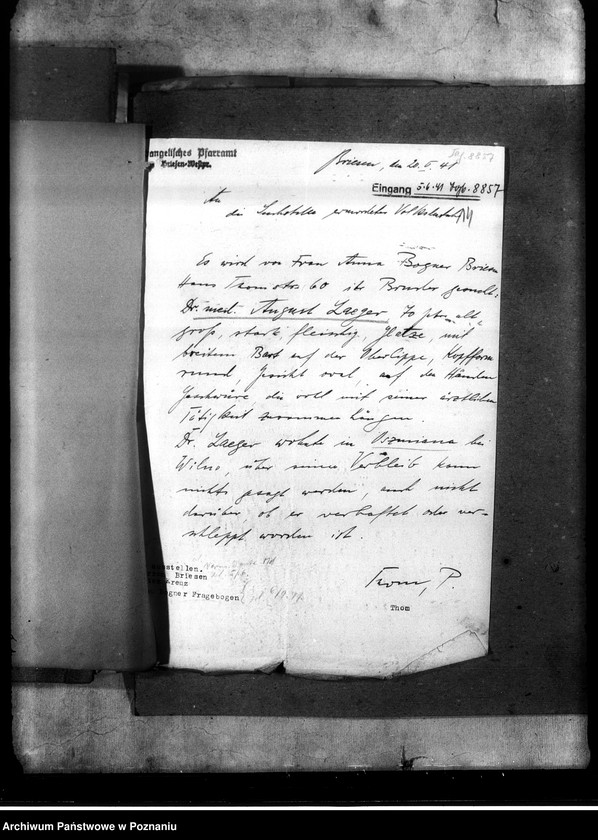 angelisches Pfarramt
Briesen-Westpr.
Briesen, den 20. V. 41
Eingang 5.6.41 8857
An
die Suchstelle ermordeter Volksdeutscher
Es wird von Frau Anna Bogner Briesen
Hans Thomstr. 60 ihr Bruder gesucht:
Dr. med. August Laeger, 70 j. alt,
groß, stark, fleischig, Glatze, mit
breitem Bart auf der Oberlippe, Kopfform
rund, Gesicht oval, auf den Händen
Geschwüre, die wohl mit seiner ärztlichen
Tätigkeit zusammenhängen.
Dr. Laeger wohnte in Oszmiana bei
Wilno, über seinen Verbleib kann
nichts gesagt werden, auch nicht
darüber, ob er verhaftet oder ver-
schleppt worden ist.
Thom, P.
Thom
stellen.
Briesen
renz
gner Fragebogen
Archiwum Państwowe w Poznaniu